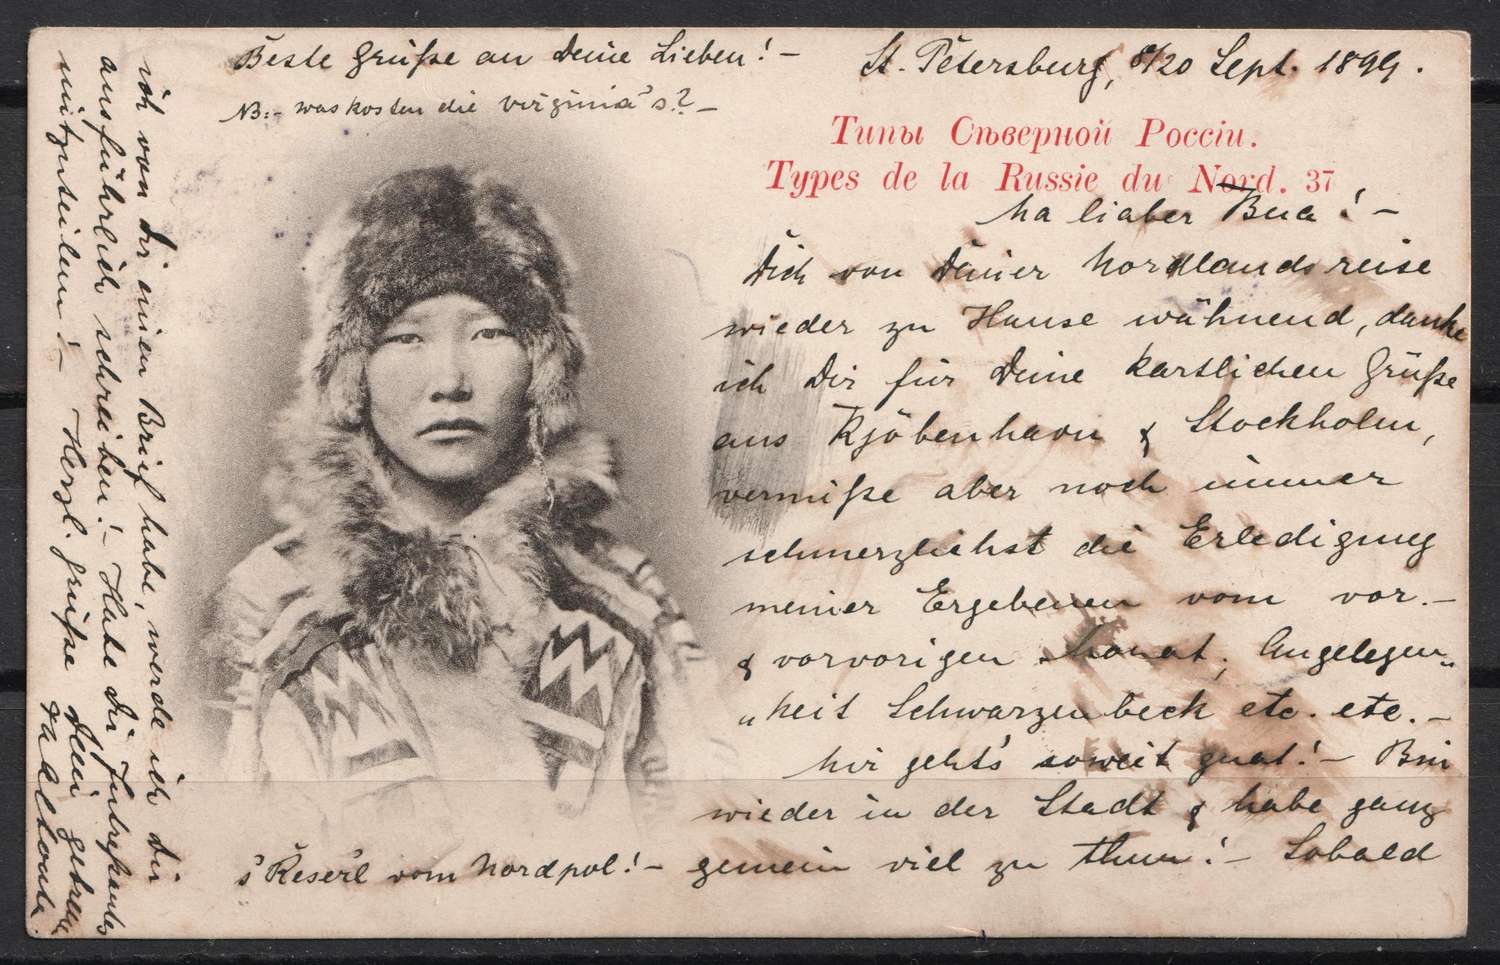 Beste Grüße an Deine Lieben! –
NB:– was kosten die Virginia's? –
St. Petersburg, 8/20 Sept. 1899.
Типы Сѣверной Россіи.
Types de la Russie du Nord. 37
Na lieber Bua! –
Dich von Deiner Nordlandsreise
wieder zu Hause wähnend, danke
ich Dir für Deine herzlichen Grüße
aus Kjöbenhavn & Stockholm,
vermiße aber noch immer
schmerzlichst die Erledigung
meiner Ergebenen vom vor.–
& vorvorigen Monat, Angelegen„
„heit Schwarzenbeck etc. etc. –
Mir geht's soweit guat! – Bin
wieder in der Stadt & habe ganz
gemein viel zu thun! – Sobald
's Reserl vom Nordpol! –
ich von Dir einen Brief habe, werde ich Dir
ausführlich schreiben! – Habe Dir Intereßantes
mitzuteilen! – Herzl. Grüße Dein getreuer